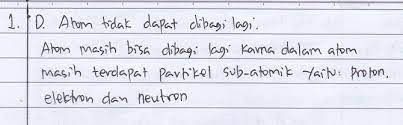 1. D. Atom tidak dapat dibagi lagi.
Atom masih bisa dibagi lagi karna dalam atom
masih terdapat partikel sub-atomik yaitu: proton,
elektron dan neutron